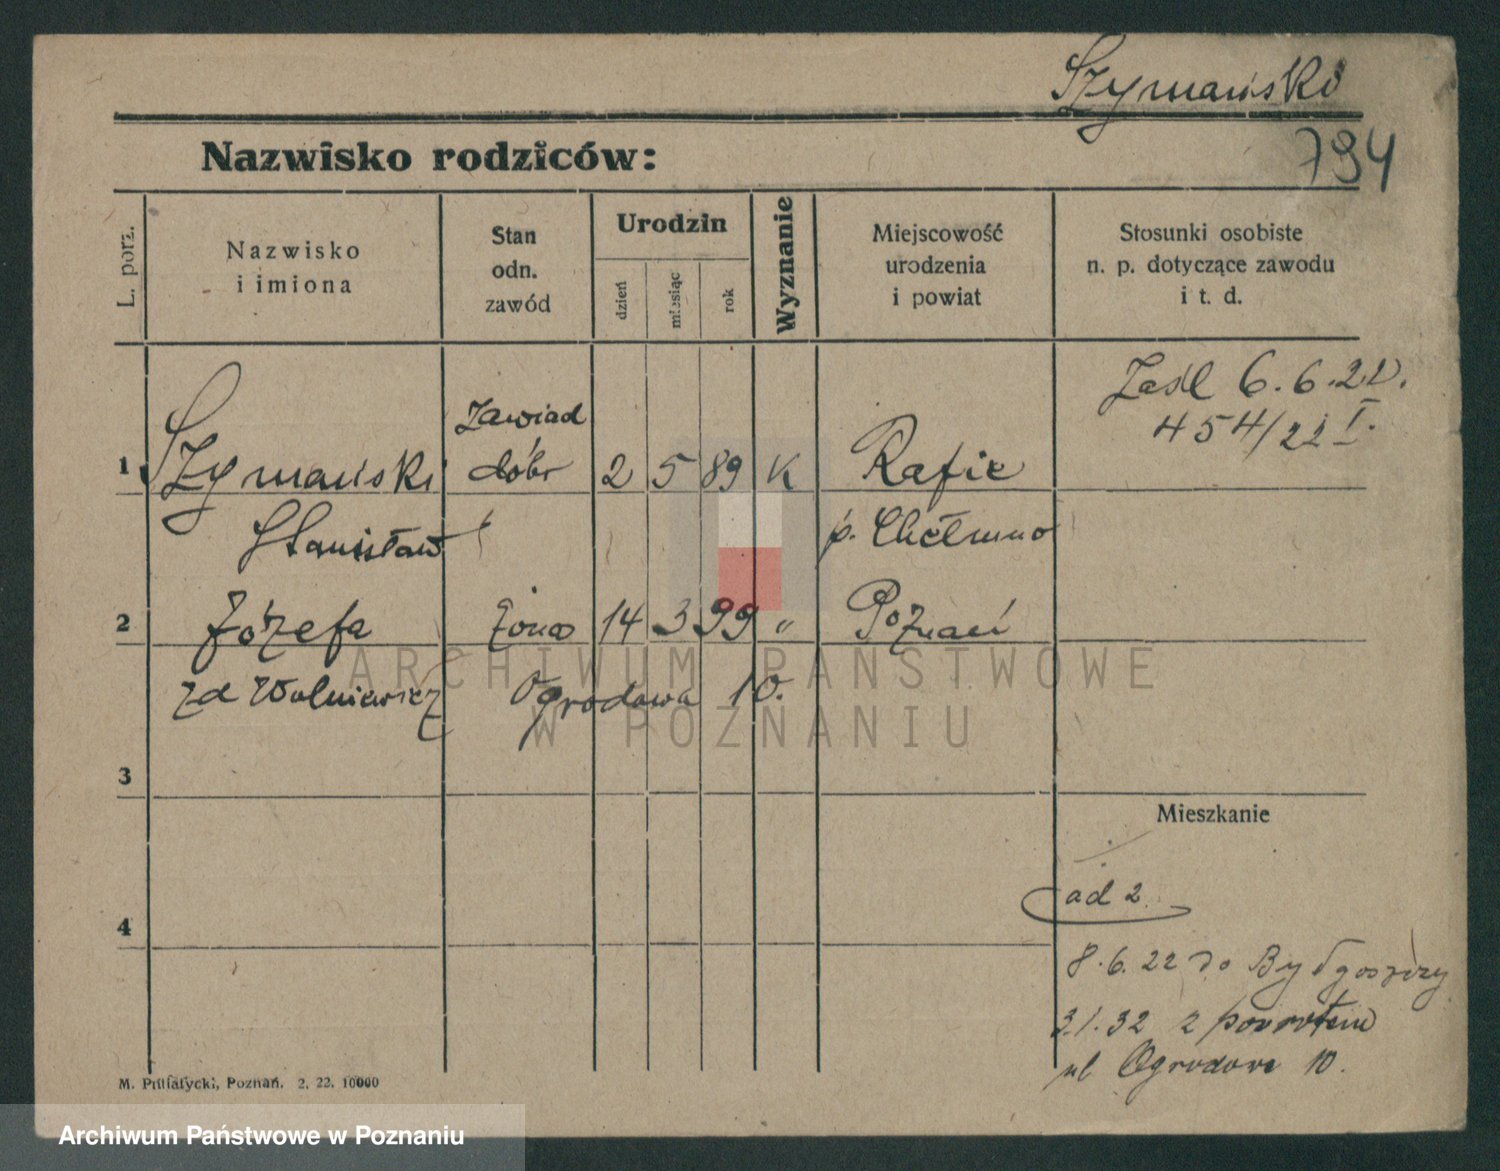 Szymański
794
Nazwisko rodziców:
L. porz.
Nazwisko
i imiona
Stan
odn.
zawód
Urodzin
dzień
miesiąc
rok
Wyznanie
Miejscowość
urodzenia
i powiat
Stosunki osobiste
n. p. dotyczące zawodu
i t. d.
Zaśl 6.6.22.
454/22 I.
1 Szymański zawiad dóbr 2 5 89 K
Stanisław p. Chełmno
2 Józefa żona 14 3 99 " Poznań
zd Wolniewicz Ogrodowa 10.
3
Mieszkanie
ad 2
4
8.6.22 do Bydgoszczy
3.1.32 z powrotem
ul Ogrodowa 10.
M. Putiatycki, Poznań. 2. 22. 10000
ARCHIWUM PAŃSTWOWE
W POZNANIU
Archiwum Państwowe w Poznaniu